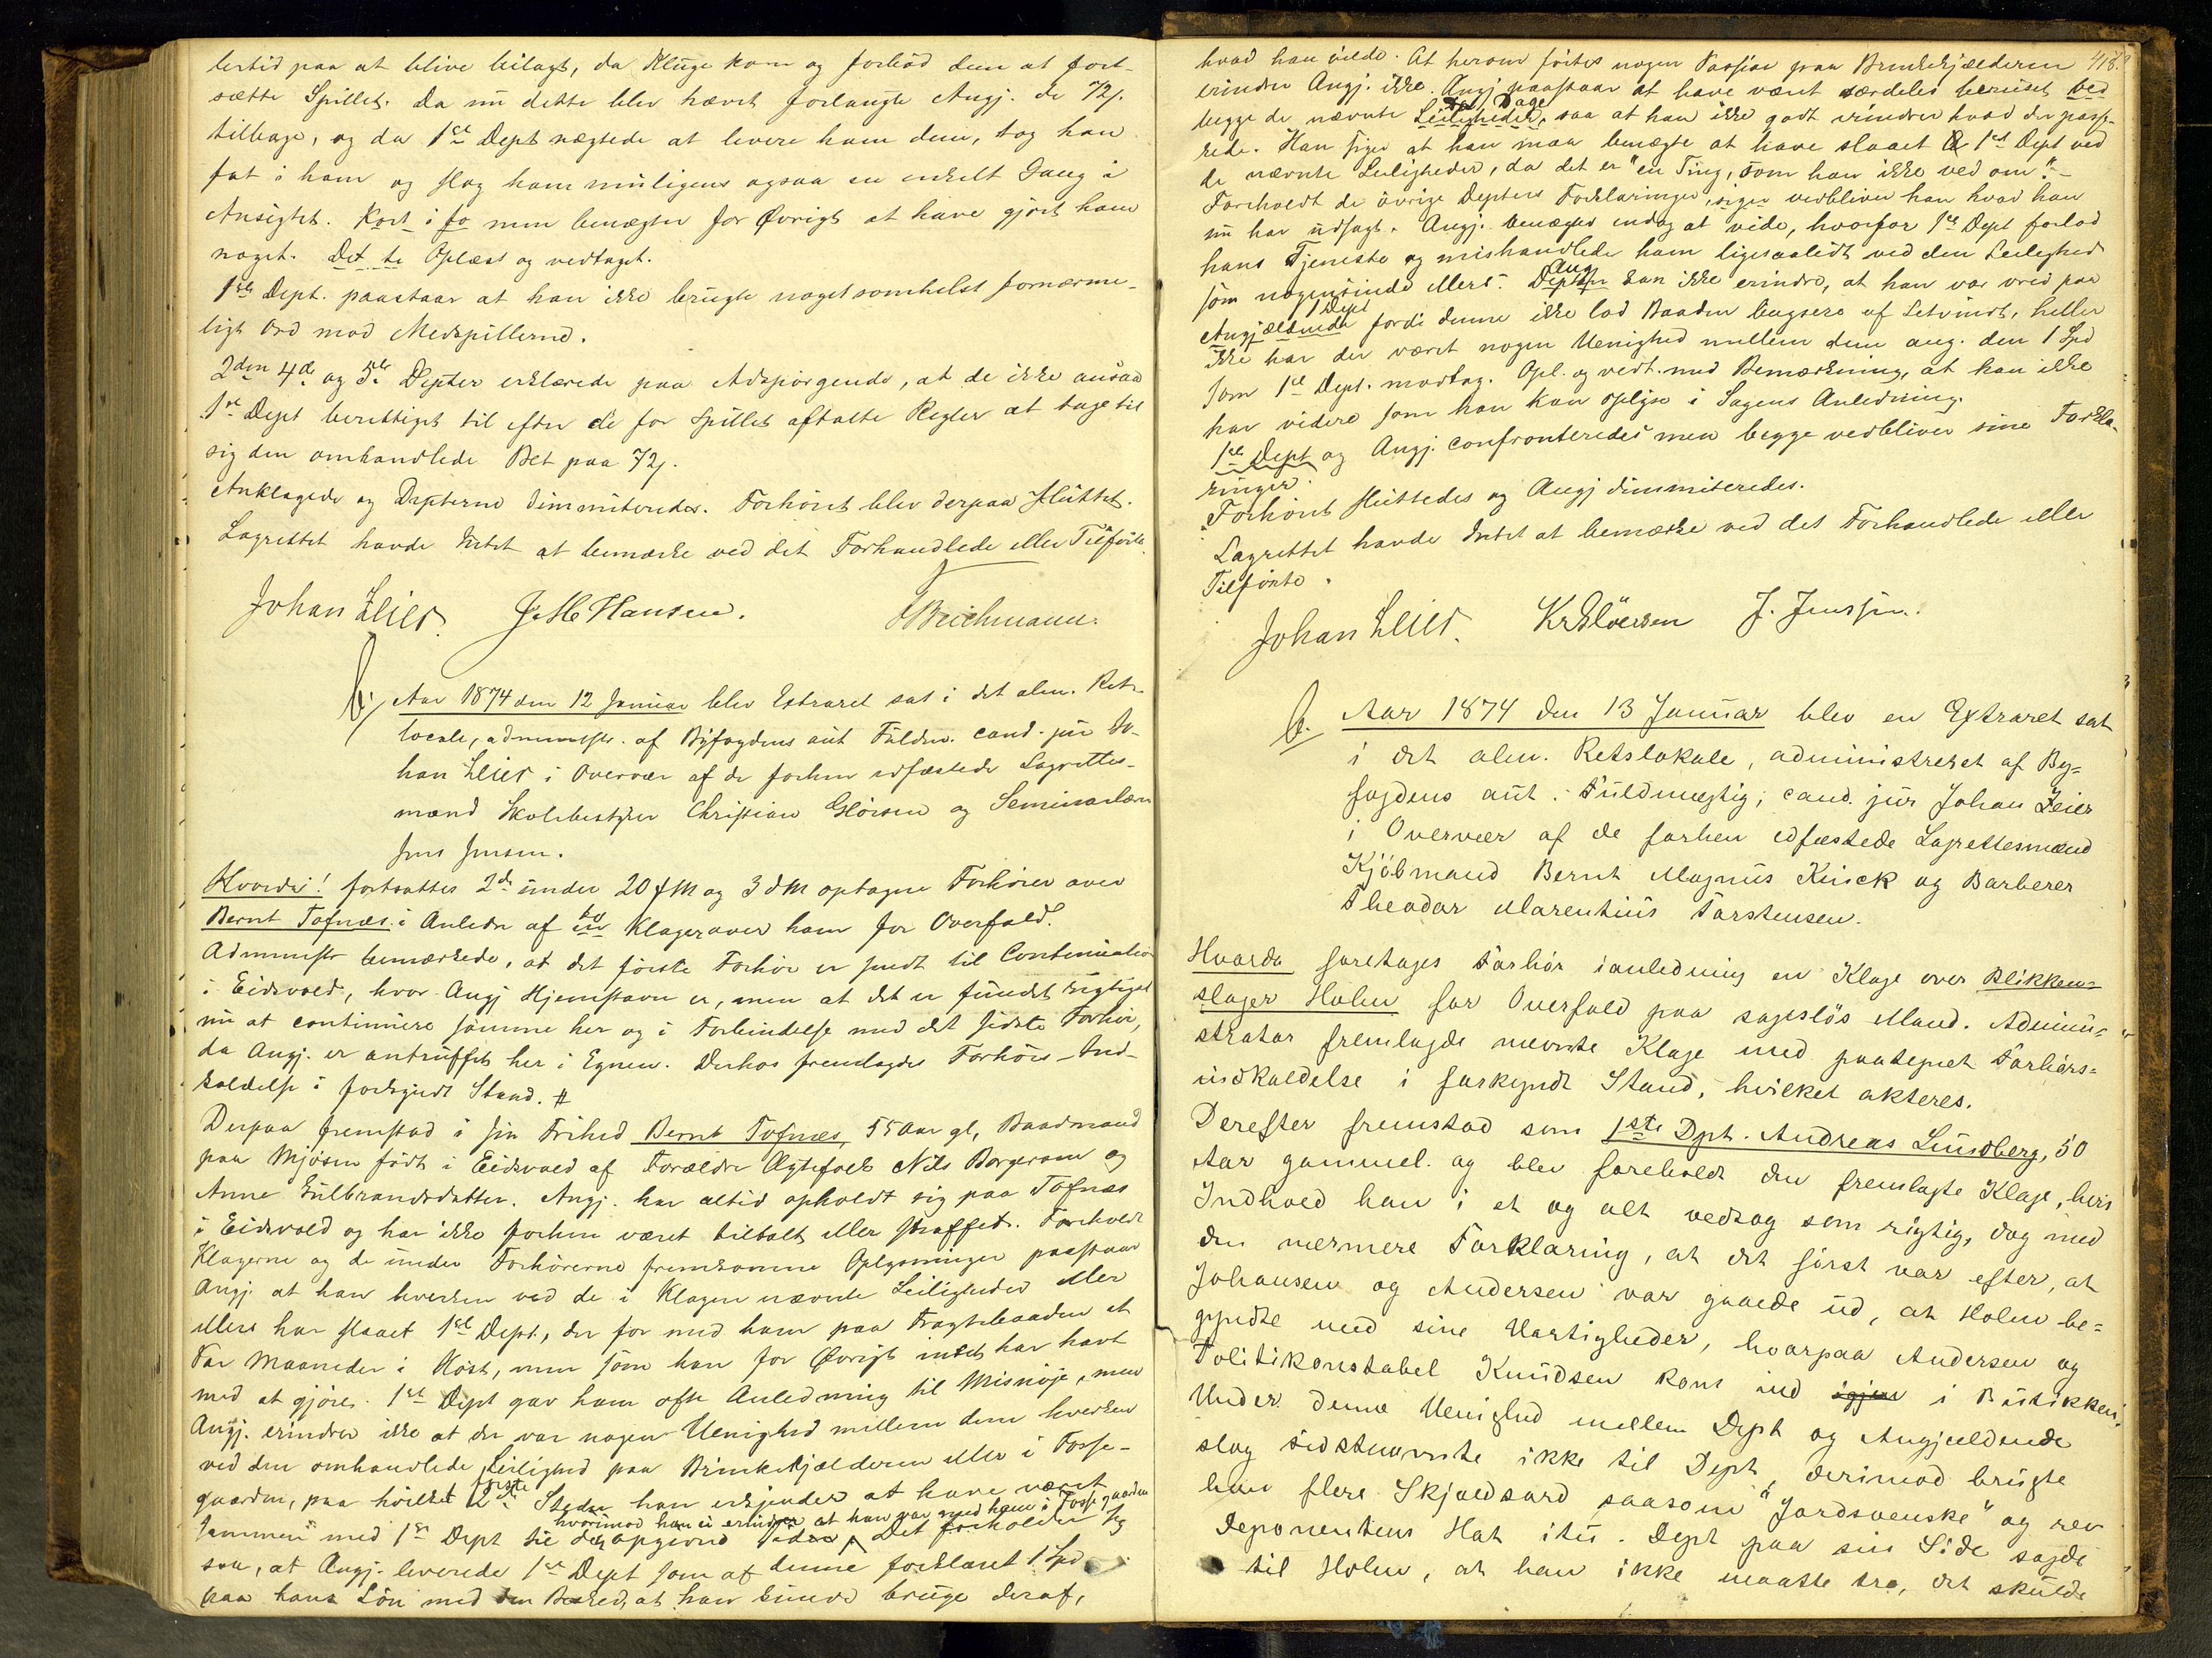 lertid paa at blive bilagt, da Kluge kom og forbød dem at fort-
sætte Spillet. Da nu dette blev hævet forlangte Angj. de 72 s.
tilbage, og da 1ste Dept nægtede at levere ham dem, tog han
fat i ham og slog ham muligens ogsaa en enkelt Gang i
Ansigtet. Kort i fo men benægter for Øvrigt at have gjort ham
noget. Det te Oplæst og vedtaget.
1ste Dept. paastaar at han ikke brugte noget somhelst fornærme-
ligt Ord mod Medspillerne.
2den 4de og 5te Depter erklærede paa Adspørgende, at de ikke ansaa
1ste Dept berettiget til efter de for Spillet aftalte Regler at tage til
sig den omhandlede Bet paa 72 s.
Anklagede og Depterne dimmiteredes. Forhøret blev derpaa sluttet.
Lagrettet havde Intet at bemærke ved det Forhandlede eller Tilførte.
Johan Zeier J. H. Hansen. Beichmann.
b. Aar 1874 den 12 Januar blev Extraret sat i det alm. Rets-
locale, administr. af Byfogdens aut Fuldm. cand. jur Jo-
han Zeier i Overvær af de forhen edfæstede Lagrettes-
mænd Skolebestyrer Christian Gløersen og Seminarlærer
Jens Jensen.
Hvorda! fortsattes 2de under 20 f M og 3 d M optagne Forhører over
Bernt Tofnæs i Anledn af to en Klager over ham for Overfald.
Administr bemærkede, at det første Forhør er sendt til Continuation
i Eidsvold, hvor Angj Hjemstavn er, men at det er fundet rigtigst
nu at continuere samme her og i Forbindelse med det sidste Forhør,
da Angj. er antruffet her i Egnen. Derhos fremlagdes Forhørs-Ind-
kaldelse i forkyndt Stand. #
Derpaa fremstod i sin Frihed Bernt Tofnæs, 55 Aar gl, Baadmand
paa Mjøsen født i Eidsvold af Forældre Ægtefolk Nils Borgersen og
Anne Gulbrandsdatter. Angj. har altid opholdt sig paa Tofnæs
i Eidsvold og har ikke forhen været tiltalt eller straffet. Foreholdt
Klagerne og de under Forhørerne fremkomne Oplysninger paastaar
Angj. at han hverken ved de i Klagen nævnte Leiligheder eller
ellers har slaaet 1ste Dept, der for med ham paa Fragtebaaden et
Par Maaneder i Høst, men som han for Øvrigt intet har havt
med at gjøre. 1ste Dept gav ham ofte Anledning til Misnøje, men
Angj. erindrer ikke at der var nogen Uenighed mellem dem hverken
ved den omhandlede Leilighed paa Brinkekjælderen eller i Fosse-
gaarden, paa hvilket første 2de Steder han erkjender at have været
sammen med 1ste Dept til den opgivne Tider, hvorimod han ei erindrer at han var med ham i Fossegaarden Det forholder sig
saa, at Angj. leverede 1ste Dept som af denne forklaret 1 Spd
paa hans Løn med den Besked, at han kunde bruge deraf,
418.
hvad han vilde. At herom førtes nogen Passiar paa Brinkekjælderen
erindrer Angj. ikke. Angj paastaar at have været særdeles beruset ved
begge de nævnte Leiligheder, Dage saa at han ikke godt erindrer hvad der pass-
erede. Han siger at han maa benægte at have slaaet 1ste Dept ved
de nævnte Leiligheder, da det er "en Ting, som han ikke ved om".-
Foreholdt de øvrige Depters Forklaringer, siger vedbliver han hvad han
nu har udsagt. Angj. benægter endog at vide, hvorfor 1ste Dept forlod
hans Tjeneste og mishandlede ham ligesaalidt ved den Leilighed
som nogensinde ellers. Depten Ang kan ikke erindre, at han var vred paa
Angjældende 1 Dept fordi denne ikke lod Baaden bugsere af Letvindt, heller
ikke har der været nogen Uenighed mellem dem ang. den 1 Spd
som 1ste Dept. modtog. Opl. og vedt. med Bemærkning, at han ikke
har videre som han kan oplyse i Sagens Anledning.
1ste Dept og Angj. confronteredes men begge vedbliver sine Forkla-
ringer.
Forhøret sluttedes og Angj dimmiteredes.
Lagrettet havde Intet at bemærke ved det Forhandlede eller
Tilførte.
Johan Zeier. Kr Gløersen J. Jenssen.
b. Aar 1874 den 13 Januar blev en Extraret sat
i det alm. Retslokale, administreret af By=
fogdens aut. Fuldmægtig, cand. jur Johan Zeier
i Overvær af de forhen edfæstede Lagrettesmænd
Kjøbmand Bernt Magnus Kinck og Barberer
Theodor Marentius Torstensen.
Hvorda foretoges Forhør i anledning en Klage over Blikken=
slager Holm for Overfald paa sagesløs Mand. Admini=
strator fremlagde nævnte Klage med paategnet Forhørs=
indkaldelse i forkyndt Stand, hvilket akteres.
Derefter fremstod som 1ste Dpt. Andreas Lundberg, 50
Aar gammel. og blev foreholdt den fremlagte Klage, hvis
Indhold han i et og alt vedtog som rigtig, dog med
den nærmere Forklaring, at det først var efter, at
Johansen og Andersen var gaaede ud, at Holm be=
gyndte med sine Hastigheder, hvorpaa Andersen og
Politikonstabel Knudsen kom ind igjen i Butikken.
Under denne Uenighed mellem Dept og Angjældende
slog sidstnævnte ikke til Dept, derimod brugte
han flere Skjældsord saasom "Jordsvenske" og rev
Deponentens Hat itu. Dept paa sin Side sagde
til Holm, at han ikke maatte tro, det skulde